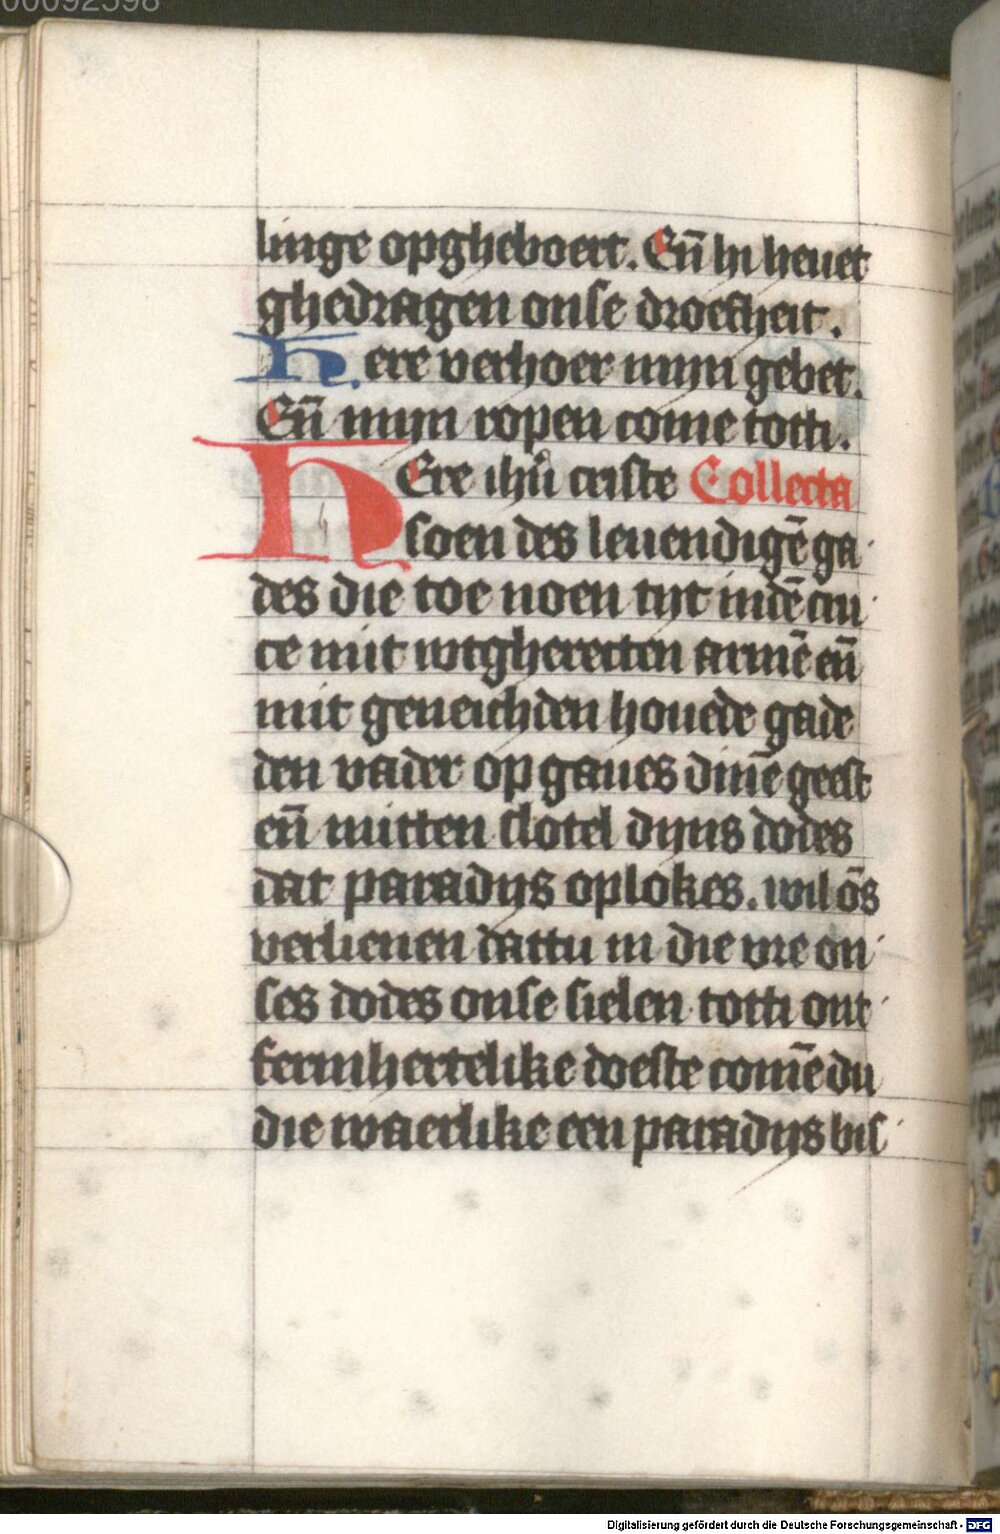 00092598
linge opgheboert. Eñ hi heuet
ghedragen onse droefheit.
Here verhoer mijn gebet.
Eñ mijn ropen come totti.
HEre ihū criste Collecta
soen des leuendigē ga
des die toe noen tijt indē cru
ce mit wtgherecten armē eñ
mit geneichden houede gade
den vader op gaues dinē geest
eñ mitten slotel dijns dodes
dat paradijs oplokes. wil ōs
verlienen dattu in die vre on
ses dodes onse sielen totti ont
fermhertelike doeste comē du
die waerlike een paradijs bis
Digitalisierung gefördert durch die Deutsche Forschungsgemeinschaft - DFG